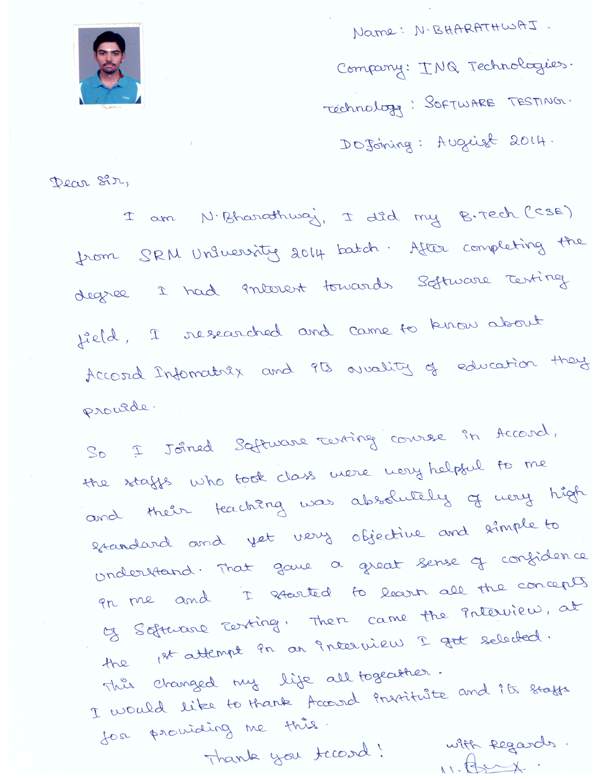 Name: N.BHARATHWAJ.
Company: INQ Technologies.
Technology: SOFTWARE TESTING.
DOJoining: August 2014.
Dear Sir,
I am N.Bharathwaj, I did my B.Tech (CSE)
from SRM University 2014 batch. After completing the
degree I had interest towards Software Testing
field, I researched and came to know about
Accord Infomatrix and its quality of education they
provide.
So I Joined Software testing course in Accord,
the staffs who took class were very helpful to me
and their teaching was absolutely of very high
standard and yet very objective and simple to
understand. That gave a great sense of confidence
in me and I started to learn all the concepts
of Software Testing. Then came the interview, at
the 1st attempt in an interview I got selected.
This changed my life all togeather.
I would like to thank Accord institiute and its staffs
for providing me this.
Thank you Accord!
with Regards.